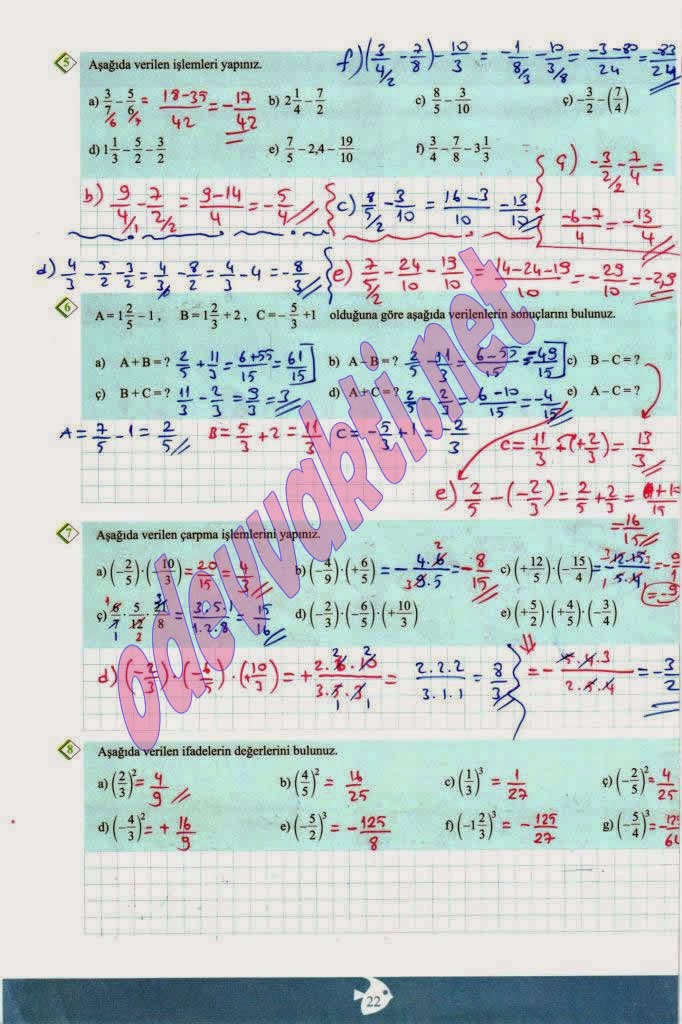 f) (3/4/2 - 7/8) - 10/3 = -1/8/3 - 10/3/8 = -3-80/24 = -83/24
5 Aşağıda verilen işlemleri yapınız.
a) 3/7/6 - 5/6/7 = 18-35/42 = -17/42 b) 2 1/4 - 7/2 c) 8/5 - 3/10 ç) -3/2 - (7/4)
d) 1 1/3 - 5/2 - 3/2 e) 7/5 - 2,4 - 19/10 f) 3/4 - 7/8 - 3 1/3
ç) -3/2/2 - 7/4 =
b) 9/4/1 - 7/2/2 = 9-14/4 = -5/4 c) 8/5/2 - 3/10 = 16-3/10 = 13/10
-6-7/4 = -13/4
d) 4/3 - 5/2 - 3/2 = 4/3 - 8/2 = 4/3 - 4 = -8/3 e) 7/5/2 - 24/10 - 19/10 = 14-24-19/10 = -29/10 = -2,9
6 A = 1 2/5 - 1 , B = 1 2/3 + 2 , C = - 5/3 + 1 olduğuna göre aşağıda verilenlerin sonuçlarını bulunuz.
a) A + B = ? 2/5 + 11/3 = 6+55/15 = 61/15 b) A - B = ? 2/5 - 11/3 = 6-55/15 = -49/15 c) B - C = ?
ç) B + C = ? 11/3 - 2/3 = 9/3 = 3 d) A + C = ? 2/5 - 2/3 = 6-10/15 = -4/15 e) A - C = ?
A = 7/5 - 1 = 2/5 B = 5/3 + 2 = 11/3 C = -5/3 + 1 = -2/3
C = 11/3 + (+2/3) = 13/3
e) 2/5 - (-2/3) = 2/5 + 2/3 = 6+10/15
= 16/15
7 Aşağıda verilen çarpma işlemlerini yapınız.
a) (-2/5)·(-10/3) = 20/15 = 4/3 b) (-4/9)·(+6/5) = -4.6/9.5 = -8/15 c) (+12/5)·(-15/4) = -12.15/5.4 = -9/1
= -9
ç) 6/7 · 5/12 · 21/8 = 3.5.1/1.2.8 = 15/16 d) (-2/3)·(-6/5)·(+10/3) e) (+5/2)·(+4/5)·(-3/4)
d) (-2/3)·(-6/5)·(+10/3) = +2.6.10/3.5.3 = 2.2.2/3.1.1 = 8/3 = -5.4.3/2.5.4 = -3/2
8 Aşağıda verilen ifadelerin değerlerini bulunuz.
a) (2/3)² = 4/9 b) (4/5)² = 16/25 c) (1/3)³ = 1/27 ç) (-2/5)² = 4/25
d) (-4/3)² = + 16/9 e) (-5/2)³ = -125/8 f) (-1 2/3)³ = -125/27 g) (-5/4)³ = -125/64
odevvakti.net
22